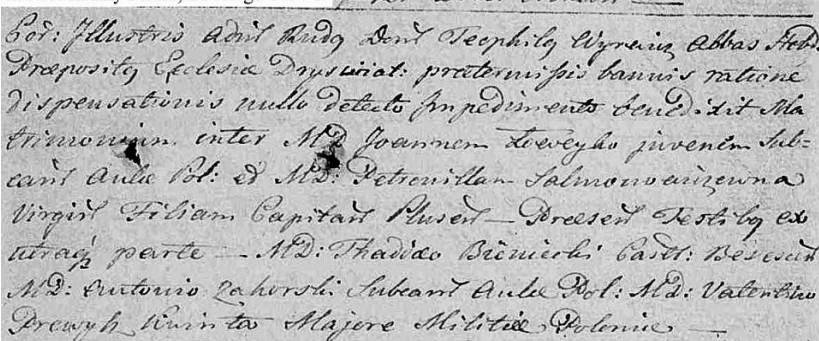 Eod: Illustris Adm̃ Rndq Dom̃ Teophilq Wyrwicz Abbas Hebd:
Præpositq Ecclesiæ Dryswiat: prætermissis bannis ratione
dispensationis nullo detecto Impedimento benedixit Ma
trimonium inter MD Joannem Łoveyko juvenem Sub=
cam̃ Aulæ Pol: et MD: Petronillam Salmonowiczewna
Virgin̄ Filiam Capitan̄ Plusen̄ — Præsen̄ Testibq ex
utraq̃ parte — MD: Thadæo Bieniecki Castl:
MD: Antonio Zahorski Subcam̃ Aulæ Pol: MD: Valentino
Kwinta Majore Militiæ Poloniæ —